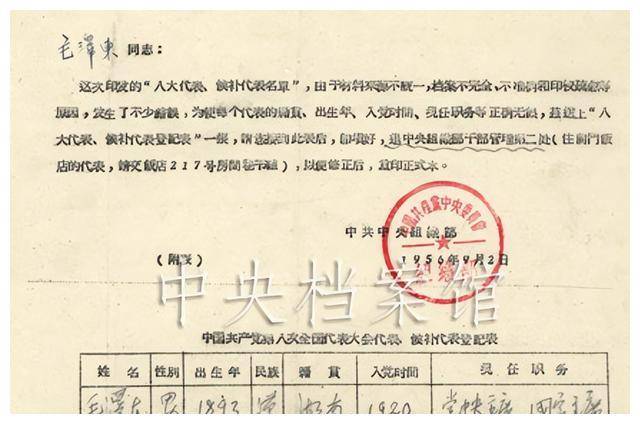 毛澤東 同志：
这次印发的“八大代表、候补代表名單”，由于材料来源不統一，档案不完全、不准确和印校疏忽等
原因，发生了不少錯誤，为使每个代表的籍貫、出生年、入党时間、現任职务等正确无誤，茲送上“八
大代表、候补代表登記表”一張，請您接到此表后，即填好，退中央組織部干部管理第二处（住前門飯
店的代表，請交飯店217号房間 ），以便修正后，重印正式本。
中共中央組織部
1956年9月2日
（附表）
中國共產黨中央委員會
組織部
中央档案馆
中国共产党第八次全国代表大会代表、候补代表登記表
姓名 性別 出生年 民族 籍貫 入党时間 現任职务
毛澤东 男 1893 漢 湖南 1920 党中央主席 国家主席